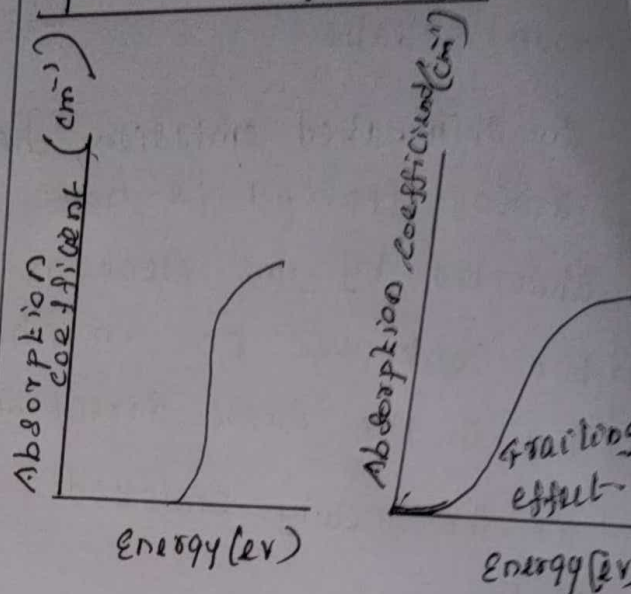 Absorption
coefficient (cm⁻¹)
Energy (ev)
Absorption coefficient (cm⁻¹)
effect
Energy (ev